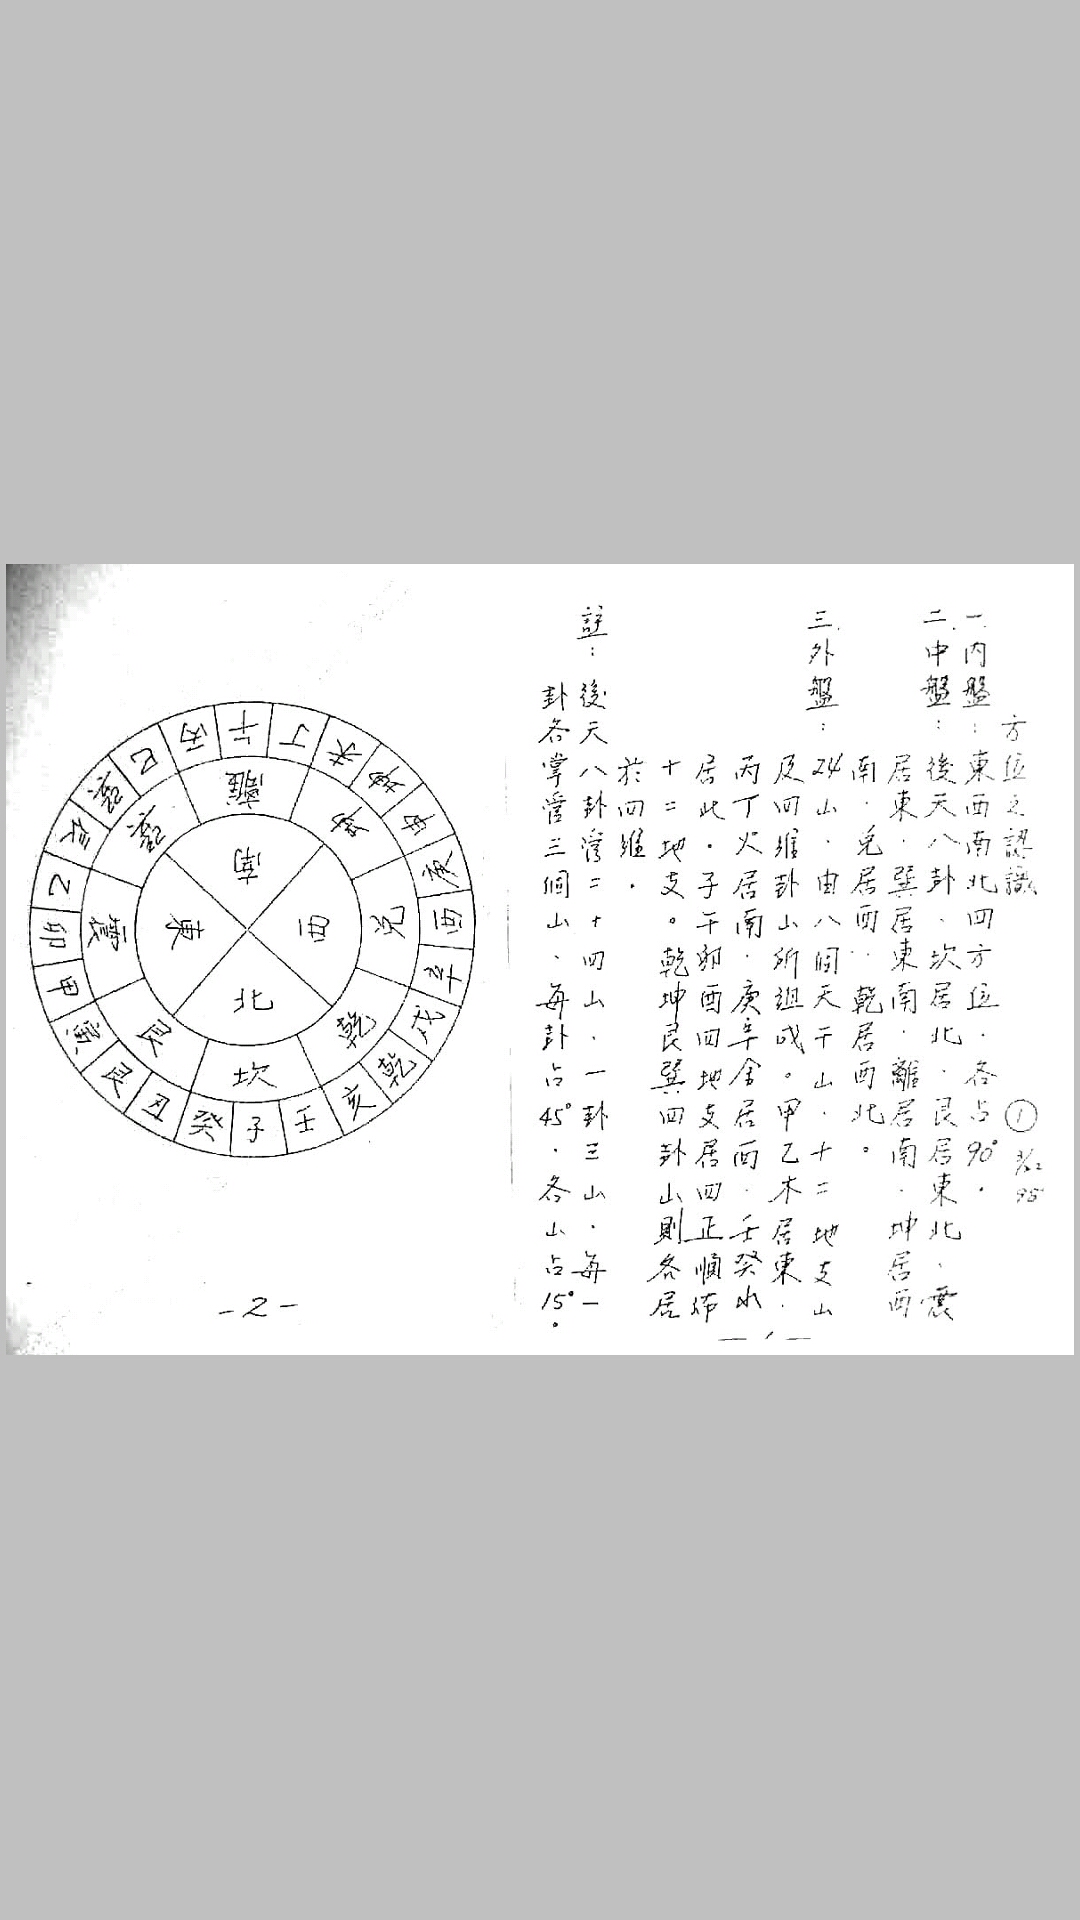 方位之認識
① 3/12 95
一.內盤:東西南北四方位.各占90°.
二.中盤:後天八卦.坎居北.艮居東北.震
居東.巽居東南.離居南.坤居西
南.兌居西.乾居西北。
三.外盤:24山.由八個天干山.十二地支山
及四維卦山所組成。甲乙木居東.
丙丁火居南.庚辛金居西.壬癸水
居北.子午卯酉四地支居四正順佈
十二地支。乾坤艮巽四卦山則各居
於四維.
註:後天八卦灣二十四山.一卦三山.每一
卦各掌管三個山.每卦占45°.各山占15°.
-1-
南
西
北
東
離
坤
兌
乾
坎
艮
震
巽
午
丁
未
坤
申
庚
酉
辛
戌
乾
亥
壬
子
癸
丑
艮
寅
甲
卯
乙
辰
巽
巳
丙
-2-